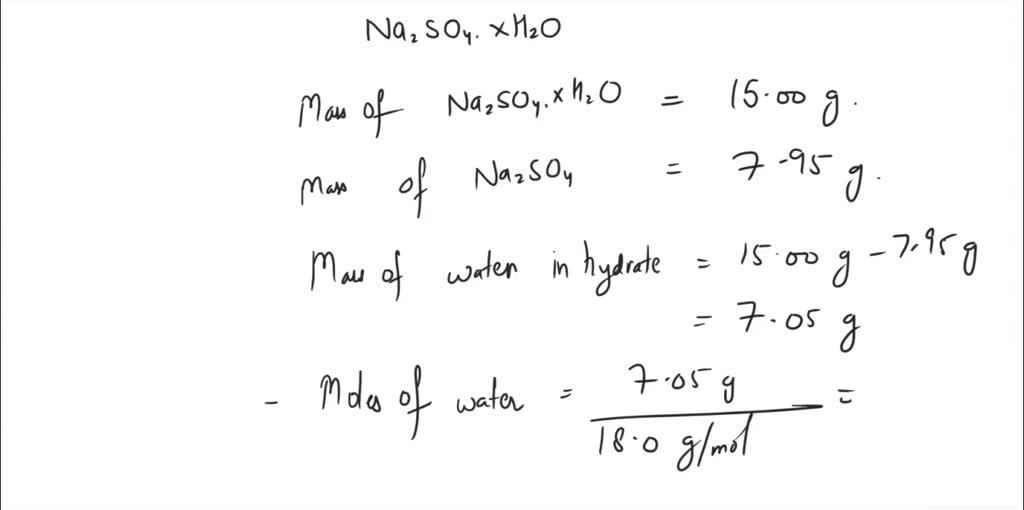 Na₂SO₄.xH₂O
Mass of Na₂SO₄.xH₂O = 15.00 g.
Mass of Na₂SO₄ = 7.95 g.
Mass of water in hydrate = 15.00 g - 7.95 g
= 7.05 g
- Moles of water = 7.05 g =
18.0 g/mol